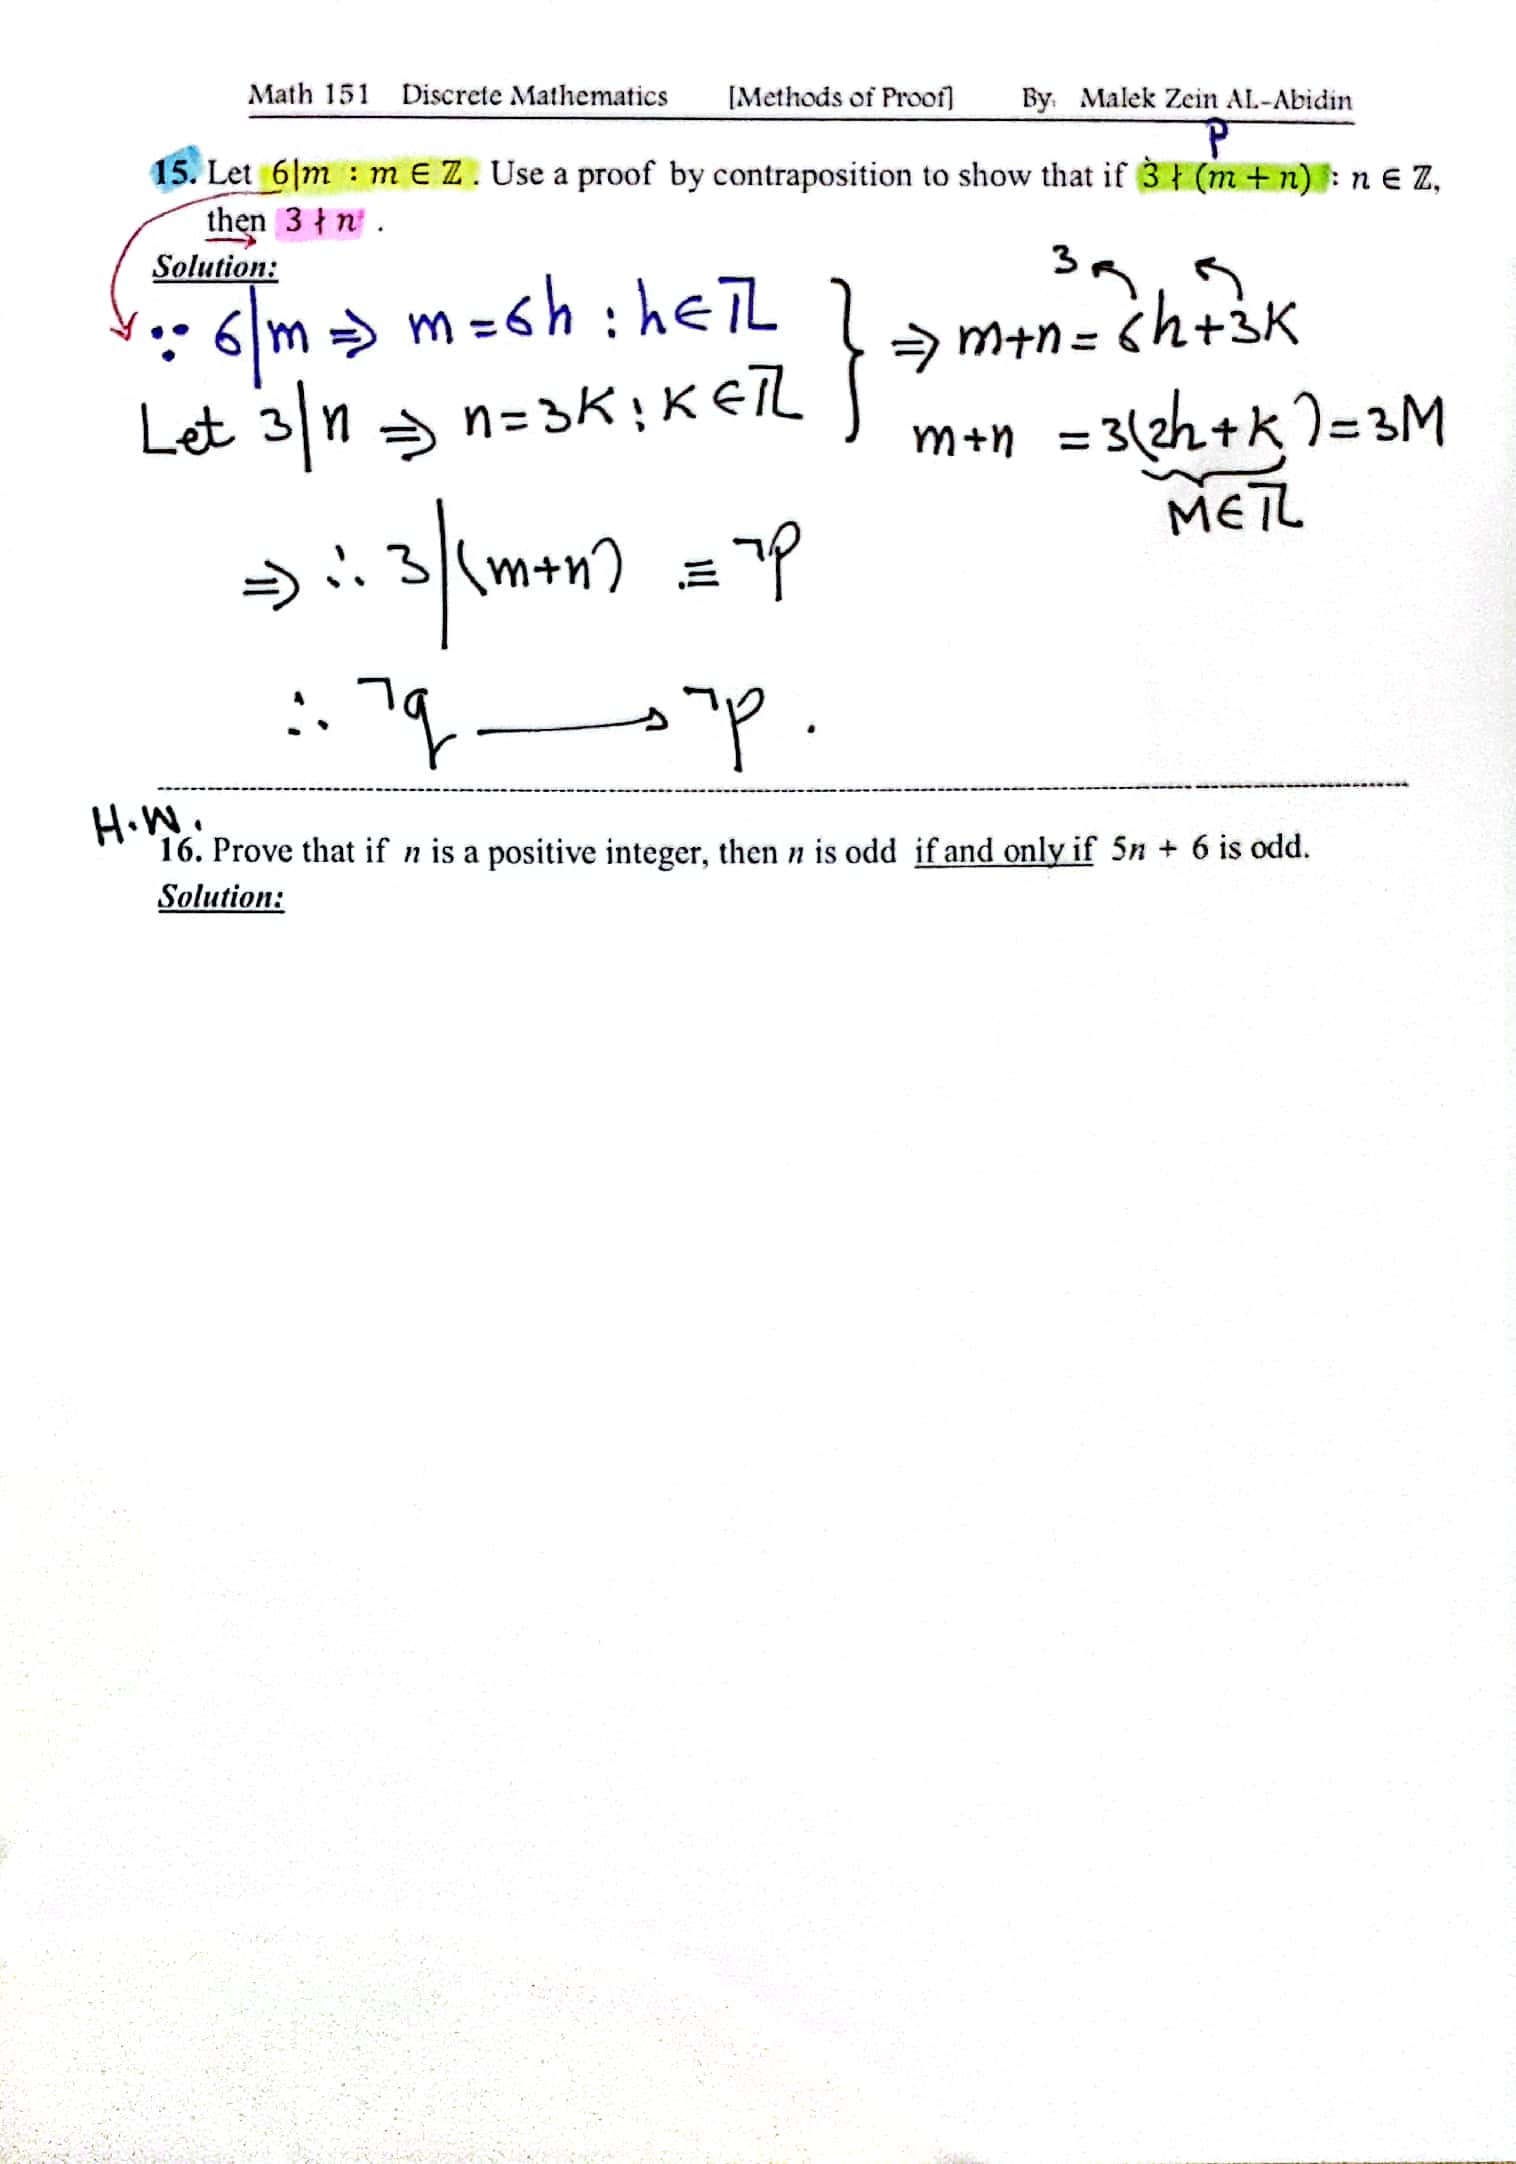 Math 151 Discrete Mathematics [Methods of Proof] By: Malek Zein AL-Abidin
P
15. Let 6|m : m ∈ ℤ . Use a proof by contraposition to show that if 3 ∤ (m + n) : n ∈ ℤ,
then 3 ∤ n .
Solution:
∵ 6|m ⇒ m = 6h : h ∈ ℤ
Let 3|n ⇒ n = 3K : K ∈ ℤ
3
⇒ m+n = 6h+3K
m+n = 3(2h+K) = 3M
M ∈ ℤ
⇒ ∴ 3|(m+n) ≡ ¬P
∴ ¬q → ¬p .
H.W.
16. Prove that if n is a positive integer, then n is odd if and only if 5n + 6 is odd.
Solution: